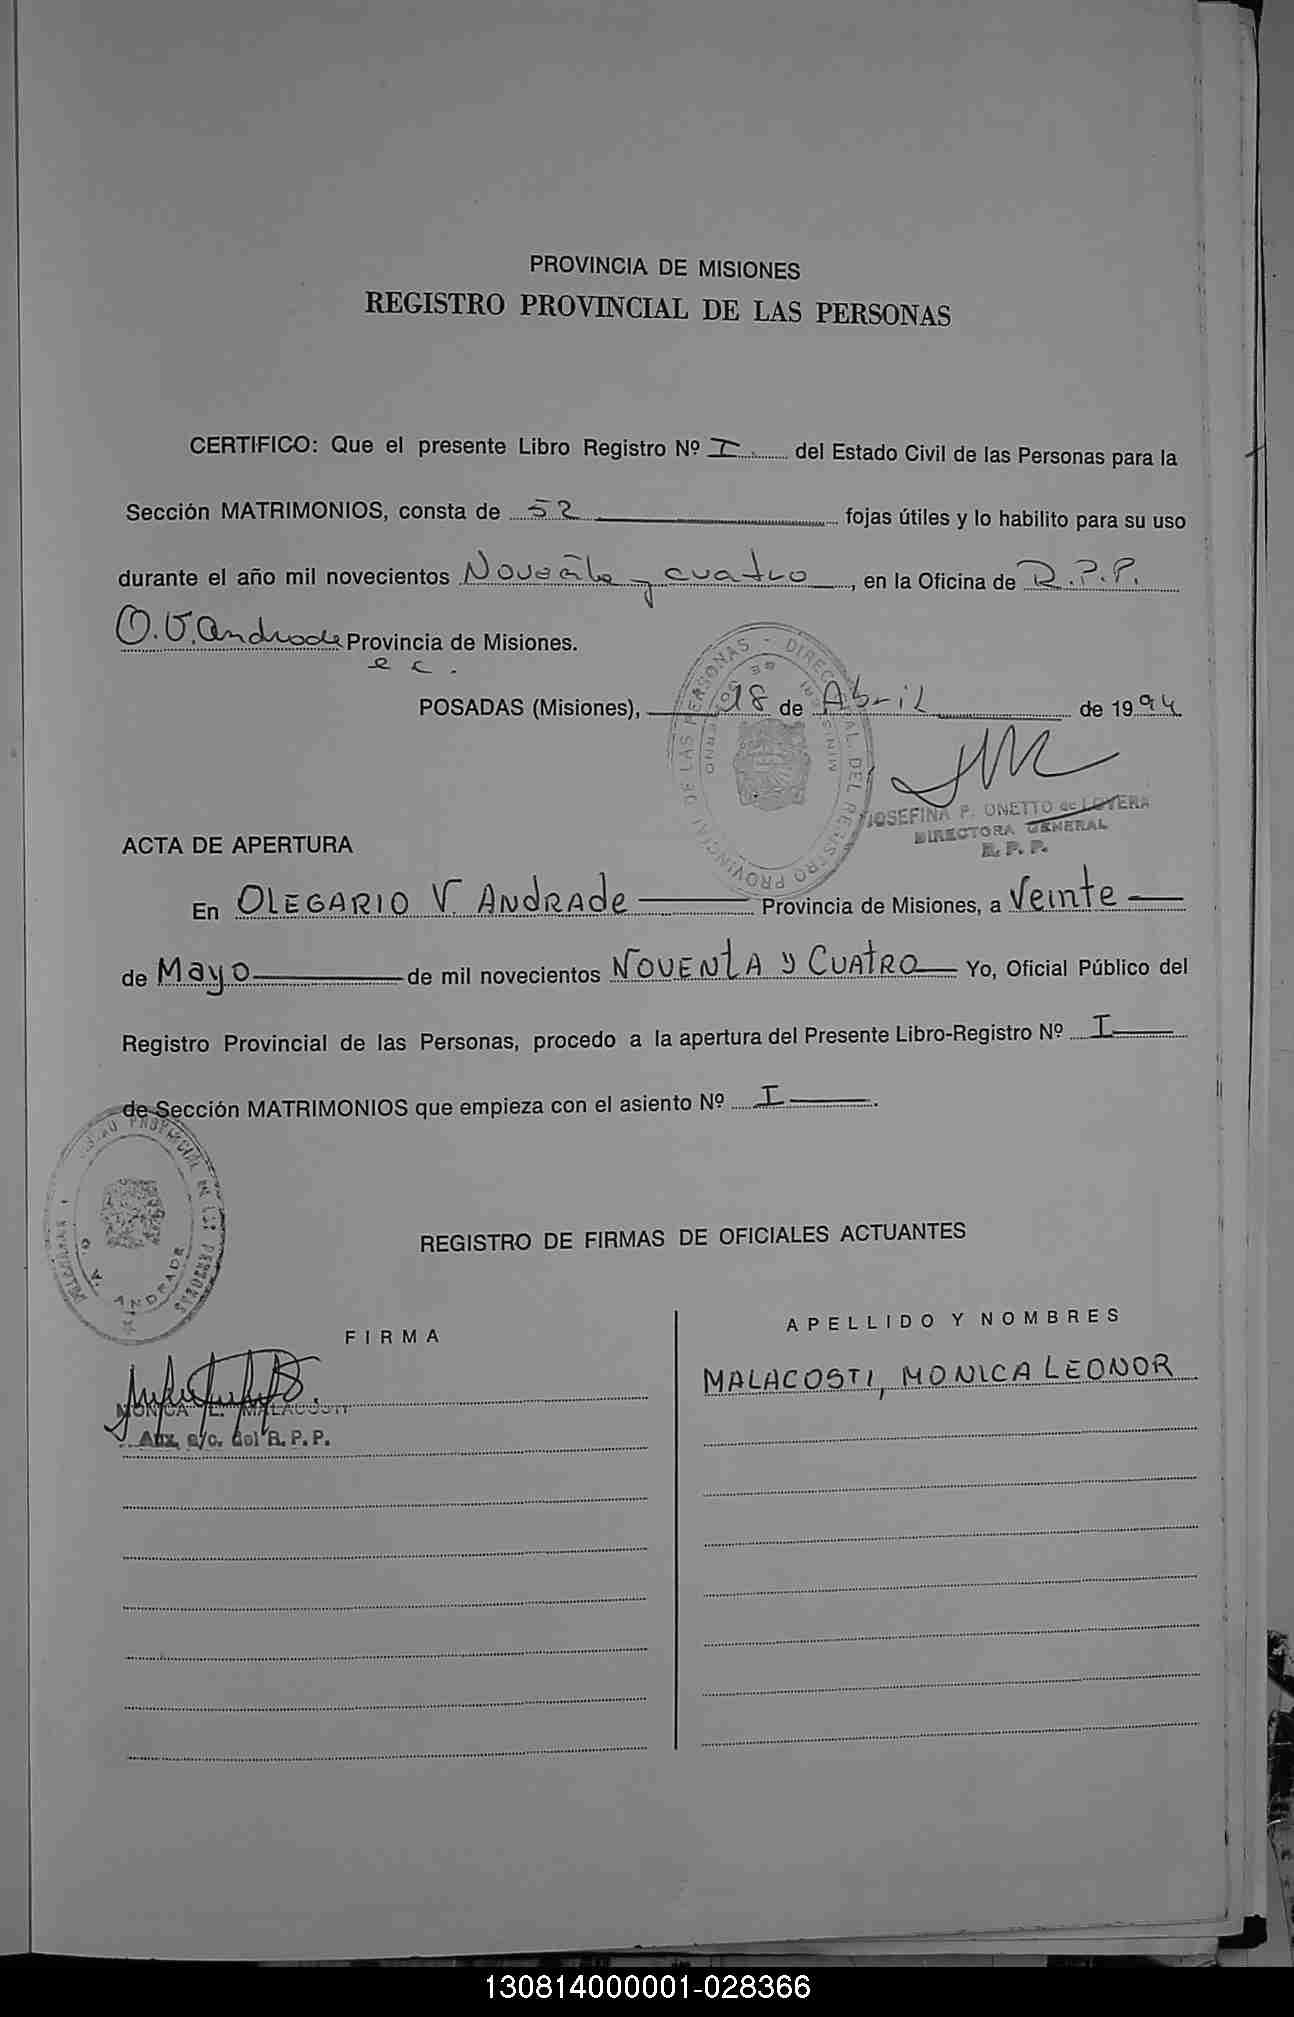 PROVINCIA DE MISIONES
REGISTRO PROVINCIAL DE LAS PERSONAS
CERTIFICO: Que el presente Libro Registro Nº I del Estado Civil de las Personas para la
Sección MATRIMONIOS, consta de 52 fojas útiles y lo habilito para su uso
durante el año mil novecientos Noventa y cuatro, en la Oficina de R.P.P.
O.V. Andrade Provincia de Misiones.
e c.
POSADAS (Misiones), 18 de Abril de 1994
JOSEFINA P. ONETTO de LOYERA
DIRECTORA GENERAL
R. P. P.
ACTA DE APERTURA
En OLEGARIO V. ANdRAde Provincia de Misiones, a Veinte
de Mayo de mil novecientos NOVENtA y CUAtRO Yo, Oficial Público del
Registro Provincial de las Personas, procedo a la apertura del Presente Libro-Registro Nº I
de Sección MATRIMONIOS que empieza con el asiento Nº I.
PROVINCIAL DE LAS PERSONAS
O. V. ANDRADE
REGISTRO DE FIRMAS DE OFICIALES ACTUANTES
FIRMA
APELLIDO Y NOMBRES
MALACOSTI, MONICA LEONOR
MONICA L. MALACOSTI
Aux. a/c. del R. P. P.
130814000001-028366